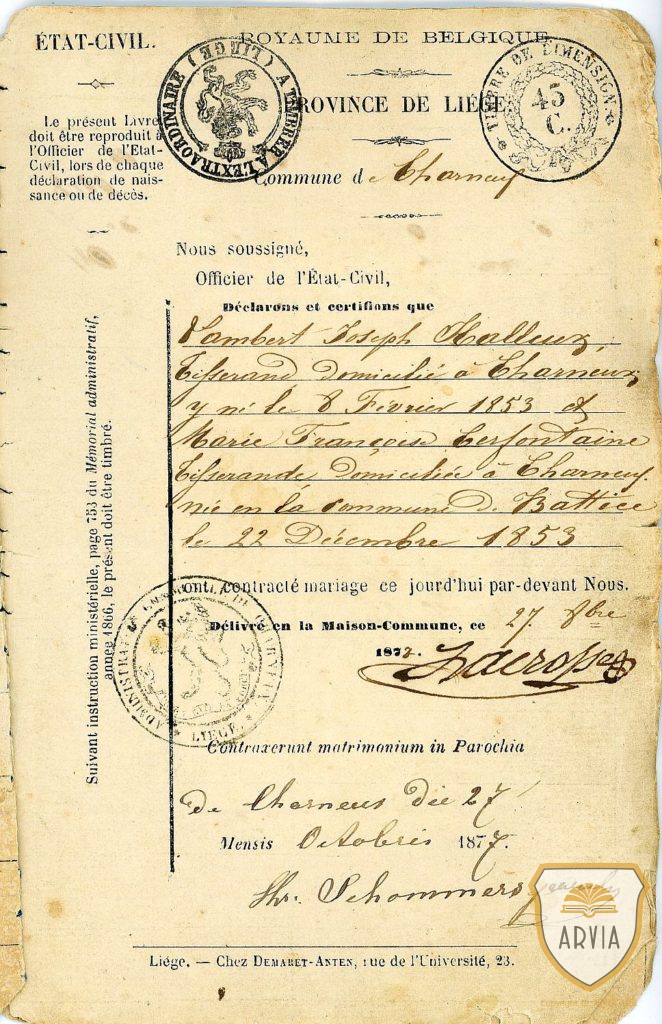 ÉTAT-CIVIL.
Le présent Livre
doit être reproduit à
l'Officier de l'Etat-
Civil, lors de chaque
déclaration de nais-
sance ou de décès.
A TIMBRER A L'EXTRAORDINAIRE (LIÉGE)
ROYAUME DE BELGIQUE
PROVINCE DE LIÉGE
TIMBRE DE DIMENSION
45
C.
Commune de Charneux
Nous soussigné,
Officier de l'État-Civil,
Déclarons et certifions que
Lambert Joseph Halleux,
Tisserand domicilié à Charneux
y né le 8 Février 1853 et
Marie Françoise Cerfontaine
Tisserande domiciliée à Charneux
née en la commune de Battice
le 22 Décembre 1853
ont contracté mariage ce jourd'hui par-devant Nous.
Délivré en la Maison-Commune, ce 27 8bre
1877.
LIÉGE.
Suivant instruction ministérielle, page 753 du Mémorial administratif,
année 1866, le présent doit être timbré.
Contraxerunt matrimonium in Parochia
de Charneus die 27
Mensis Octobris 1877.
Schommers
Liége. — Chez DEMARET-ANTEN, rue de l'Université, 23.
ARVIA